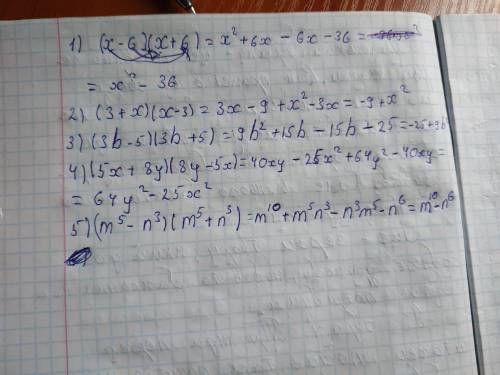 1) (x-6)(x+6) = x²+6x - 6x - 36 =
= x² - 36
2) (3+x)(x-3) = 3x - 9 + x² - 3x = -9 + x²
3) (3b-5)(3b+5) = 9b² + 15b - 15b - 25 = -25+9b
4) (5x + 8y)(8y - 5x) = 40xy - 25x² + 64y² - 40xy =
= 64y² - 25x²
5) (m⁵ - n³)(m⁵ + n³) = m¹⁰ + m⁵n³ - n³m⁵ - n⁶ = m¹⁰ - n⁶